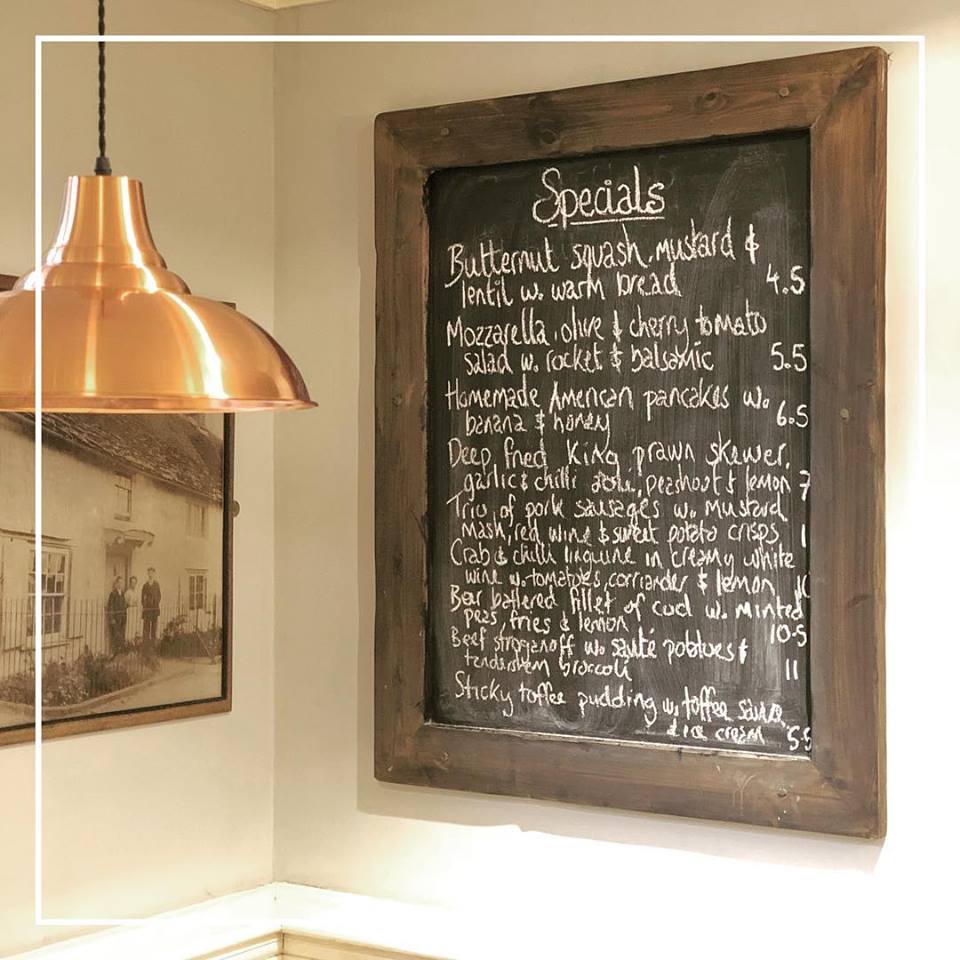 Specials
Butternut squash, mustard &
lentil w. warm bread 4.5
Mozzarella, olive & cherry tomato
salad w. rocket & balsamic 5.5
Homemade American pancakes w.
banana & honey 6.5
Deep fried King prawn skewer,
garlic & chilli peashoot & lemon 7
Trio of pork sausages w. mustard
mash, red wine & sweet potato crisps
Crab & chilli linguine in creamy white
wine w. tomatoes, corriander & lemon
Beer battered fillet of cod w. minted
peas, fries & lemon 10.5
Beef stroganoff w. sauté potatoes &
tenderstem broccoli 11
Sticky toffee pudding w. toffee sauce
& ice cream 5.5